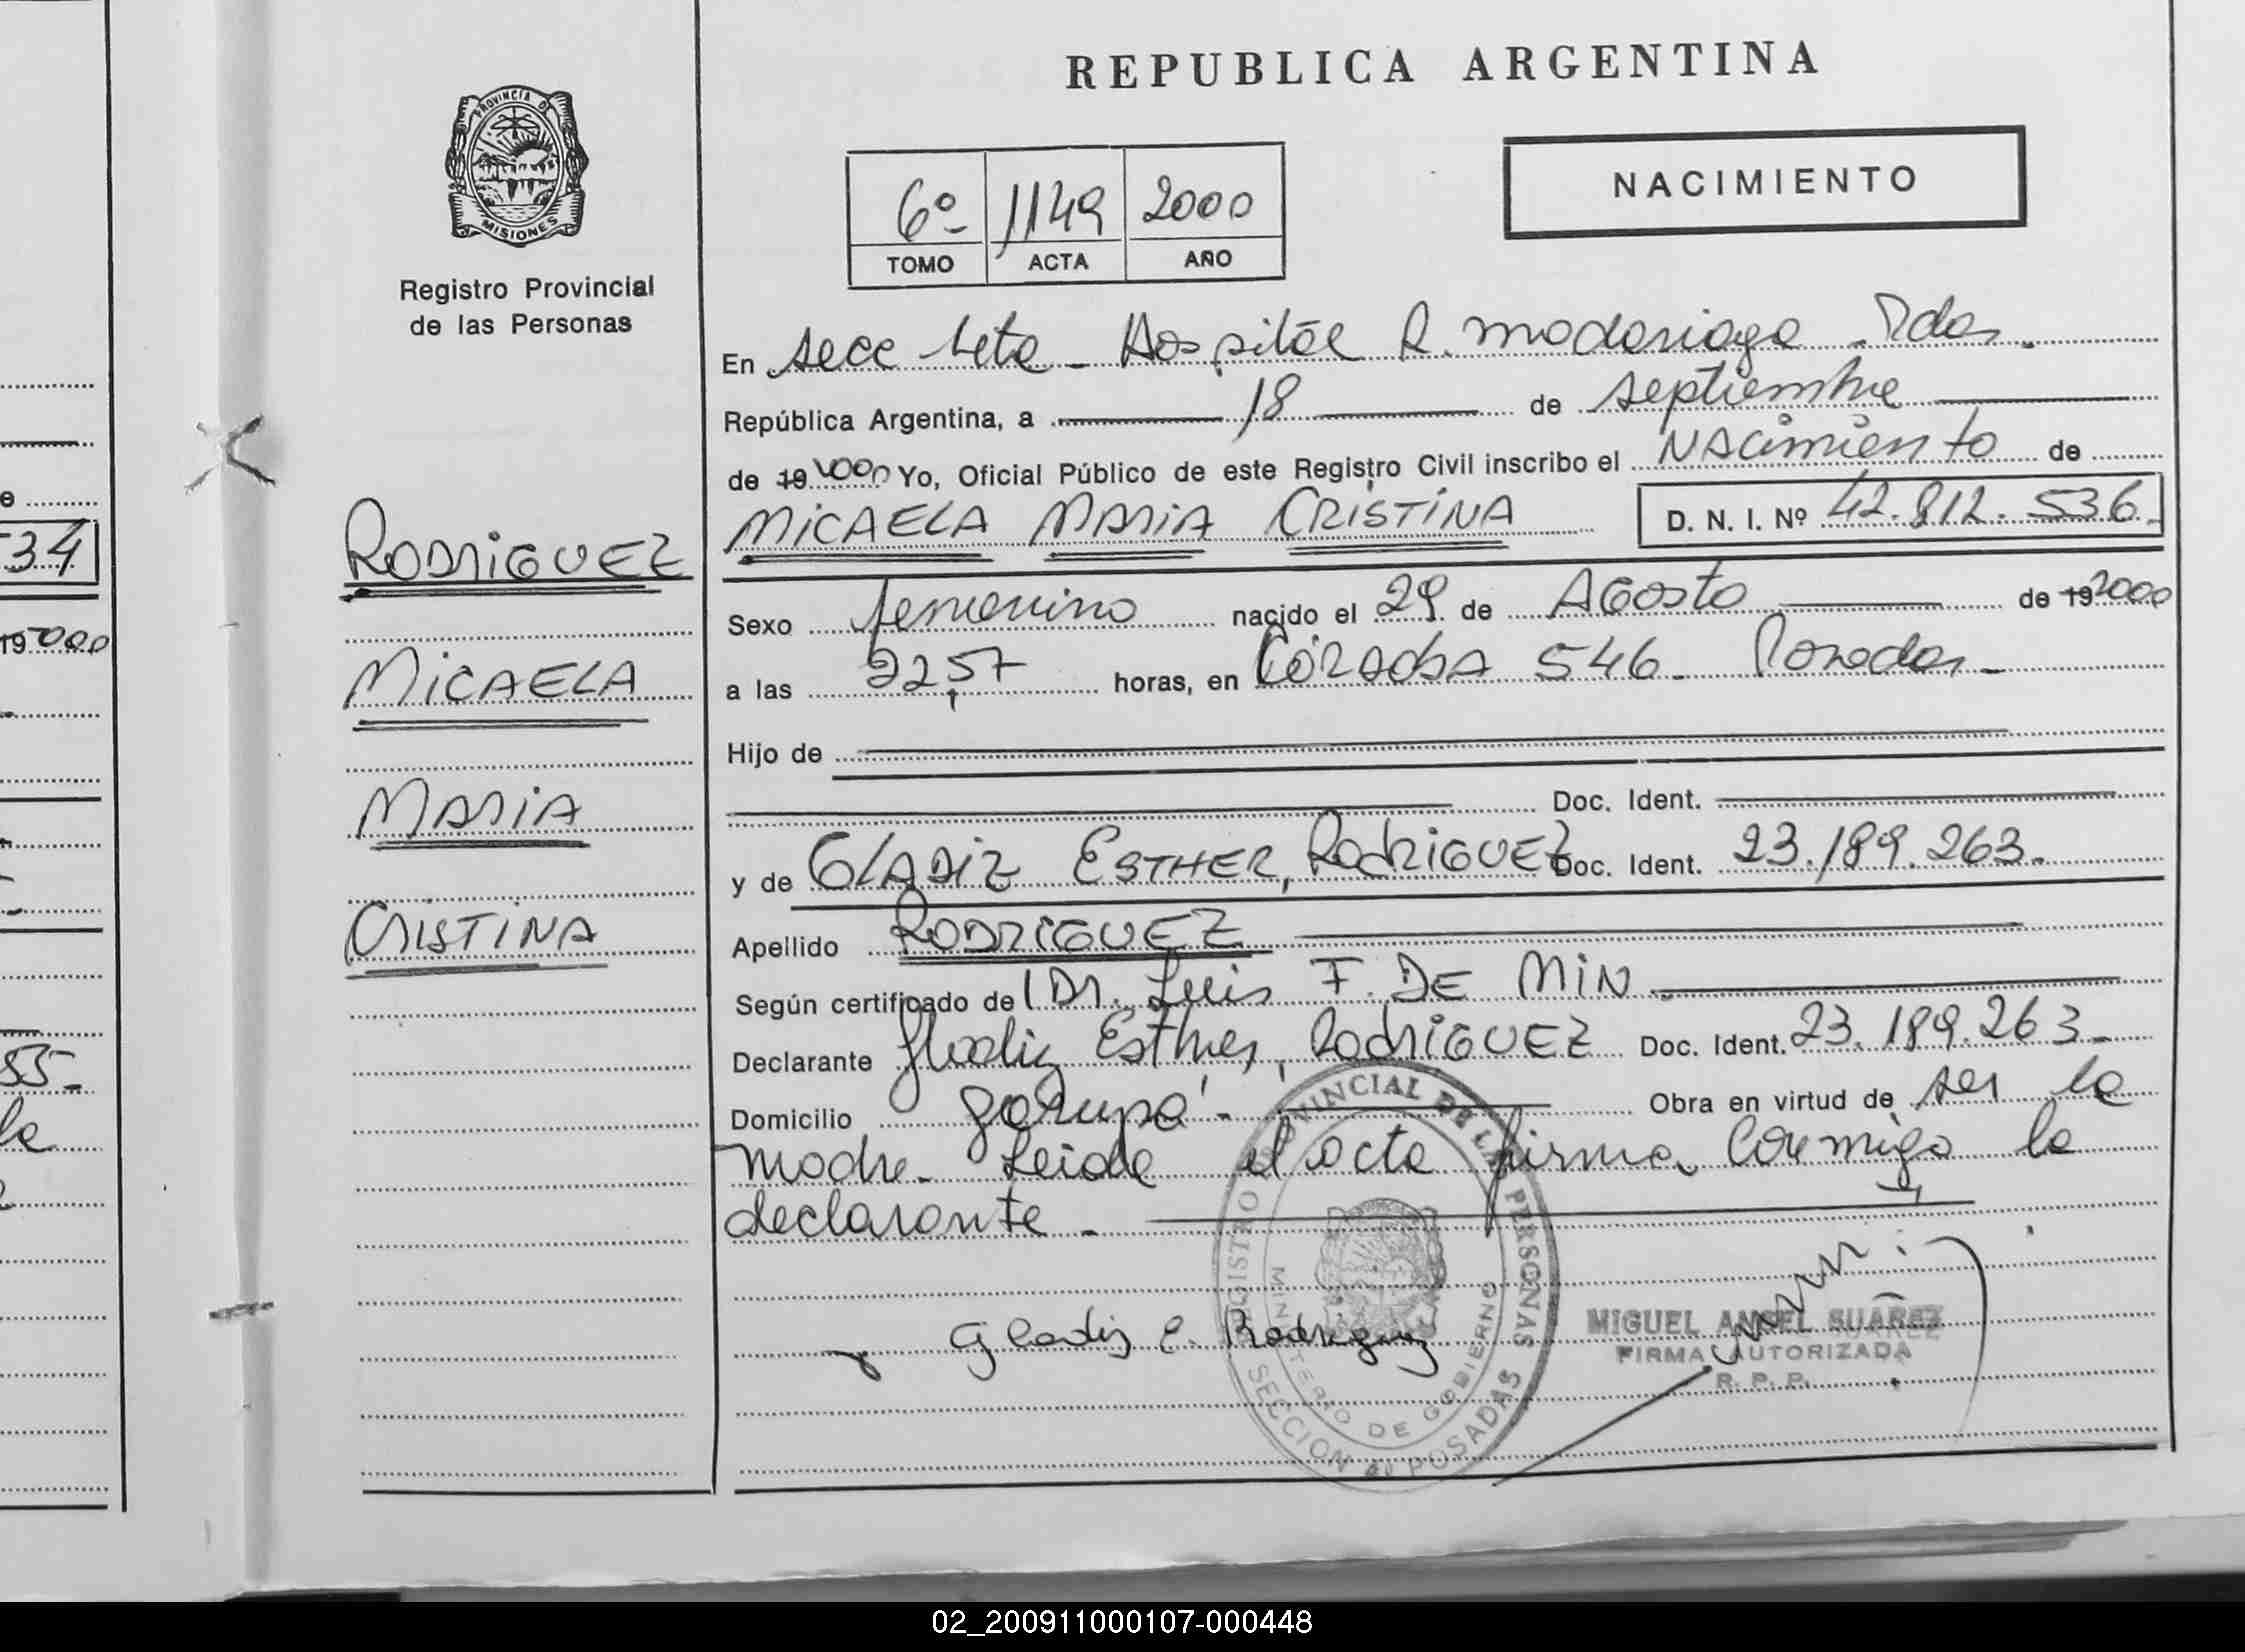 REPUBLICA ARGENTINA
PROVINCIA DE MISIONES
Registro Provincial
de las Personas
6º 1149 2000
TOMO ACTA AÑO
NACIMIENTO
En Secc 4ta - Hospital R. Madariaga - Pdas.
República Argentina, a 18 de septiembre
de 19 2000 Yo, Oficial Público de este Registro Civil inscribo el NACimiento de
MICAELA MARIA CRISTINA D. N. I. Nº 42.812.536.
Sexo femenino nacido el 29 de AGosto de 19 2000
a las 22,57 horas, en CÓRDOBA 546 - Posadas -
Hijo de
Doc. Ident.
y de GLADIZ ESTHER, RodRiGUEZ Doc. Ident. 23.189.263.
Apellido RODRIGUEZ
Según certificado de Dr. Luis F. DE MIN.
Declarante Gladiz Esther, RodriGUEZ Doc. Ident. 23.189.263.-
Domicilio Garupá - Obra en virtud de ser la
madre. Leida el acta firma conmigo la
declarante -
RODRIGUEZ
MICAELA
MARIA
CRISTINA
Gladiz E. Rodriguez
REGISTRO PROVINCIAL DE LAS PERSONAS
MINISTERIO DE GOBIERNO
SECCION POSADAS
MIGUEL ANGEL SUAREZ
FIRMA AUTORIZADA
R. P. P.
34
19 2000
55-
la
02_200911000107-000448